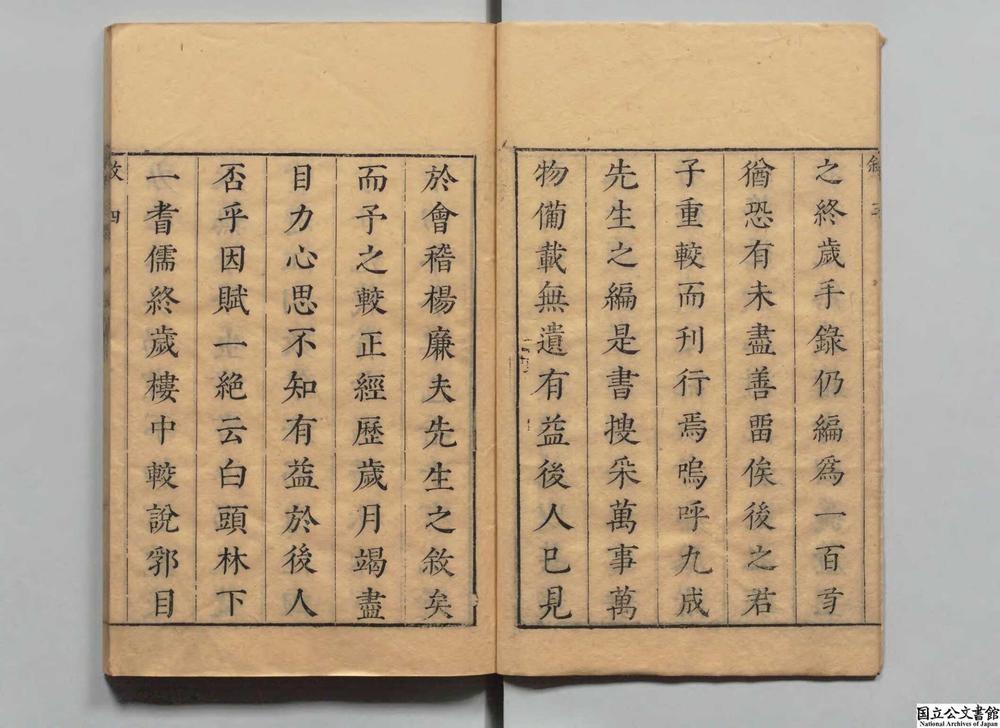 之終歲手錄仍編爲一百䒤
猶恐有未盡善畱俟後之君
子重較而刊行焉嗚呼九成
先生之編是書搜采萬事萬
物僃載無遺有益後人已見
於會稽楊廉夫先生之敘矣
而予之較正經歷歲月竭盡
目力心思不知有益於後人
否乎因賦一絕云白頭林下
一耆儒終歲樓中較說郛目
四
国立公文書館
National Archives of Japan